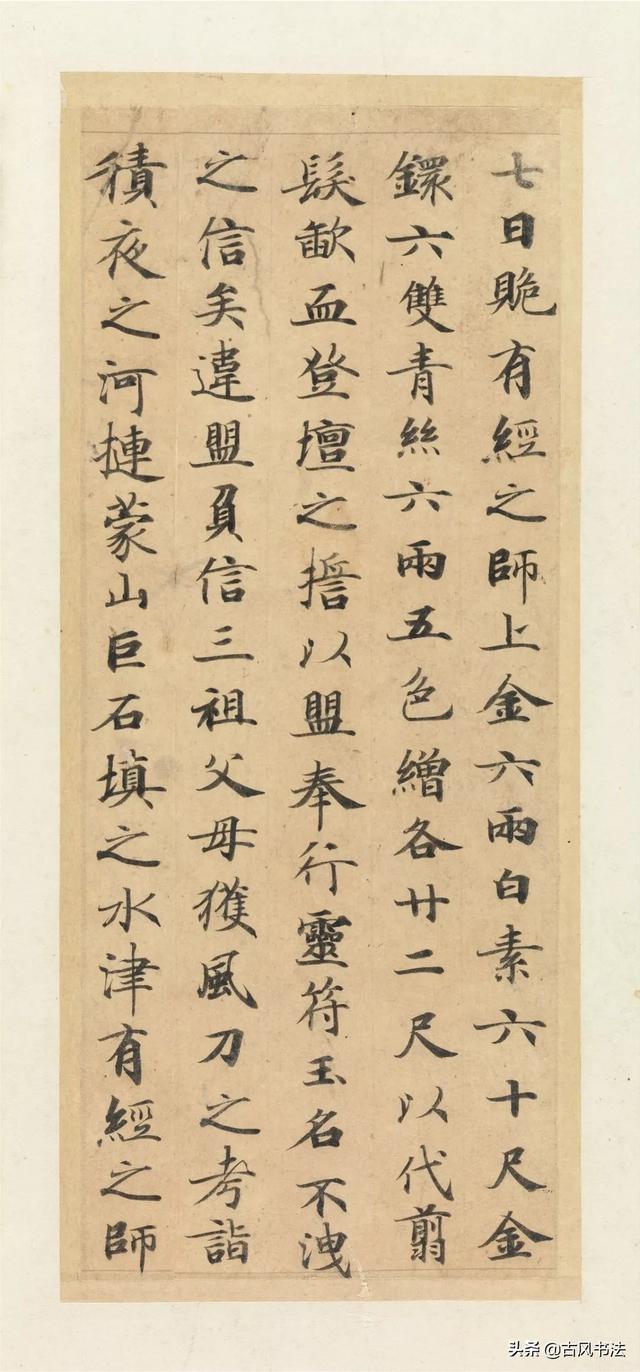 七日跪有經之師上金六兩白素六十尺金
鐶六雙青絲六兩五色繒各廿二尺以代翦
髮歃血登壇之誓以盟奉行靈符玉名不洩
之信矣違盟負信三祖父母獲風刀之考詣
積夜之河摙蒙山巨石填之水津有經之師
头条 @古风书法